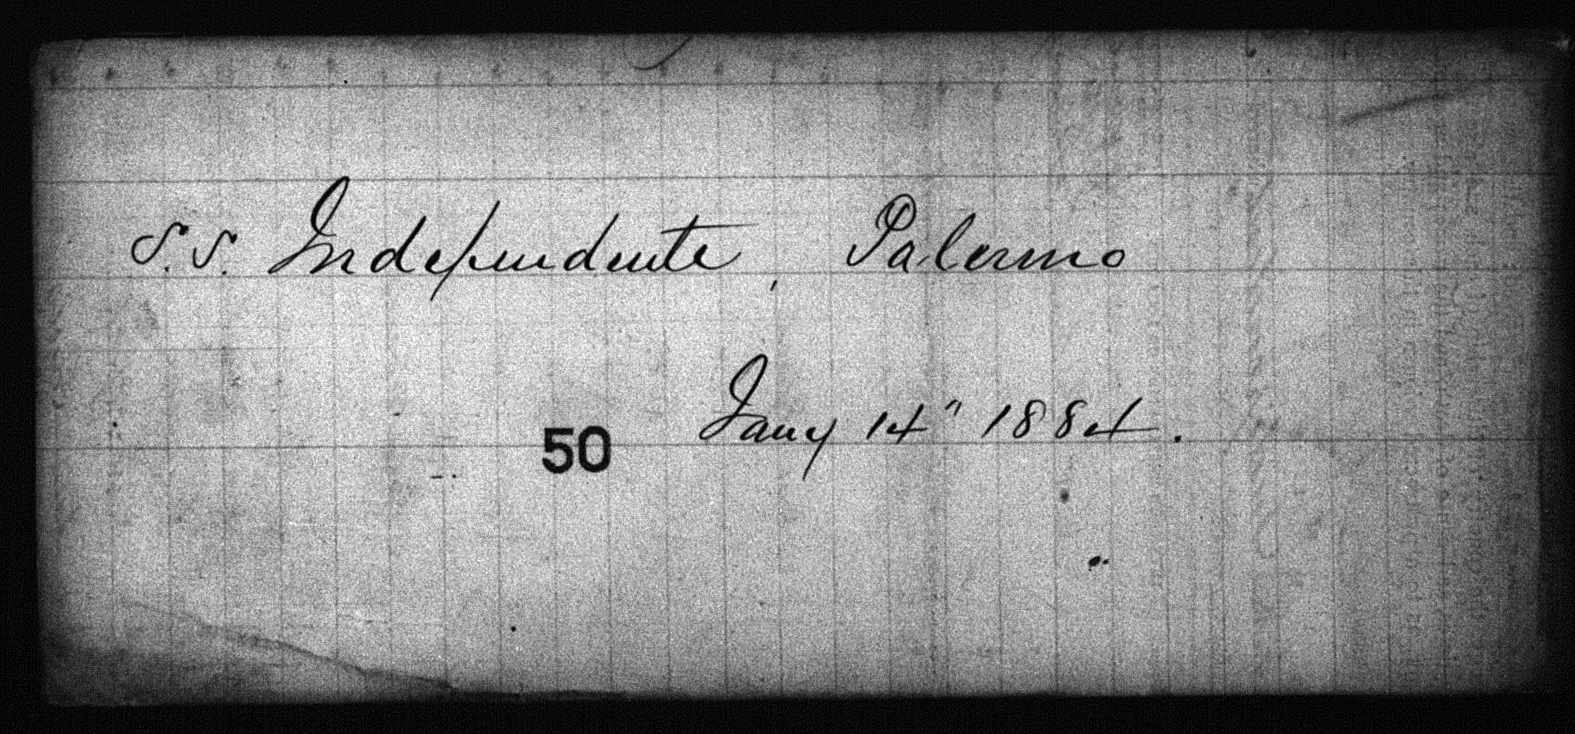 S.S. Independente, Palermo
50 Jany 14" 1884.